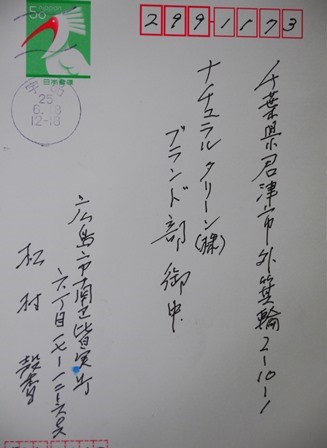 50 NIPPON
日本郵便
25
6.18
12-18
299-1173
千葉県君津市外箕輪2-10-1
ナチュラルクリーン(株)
ブランド部 御中
広島市南区皆実町
六丁目
松村